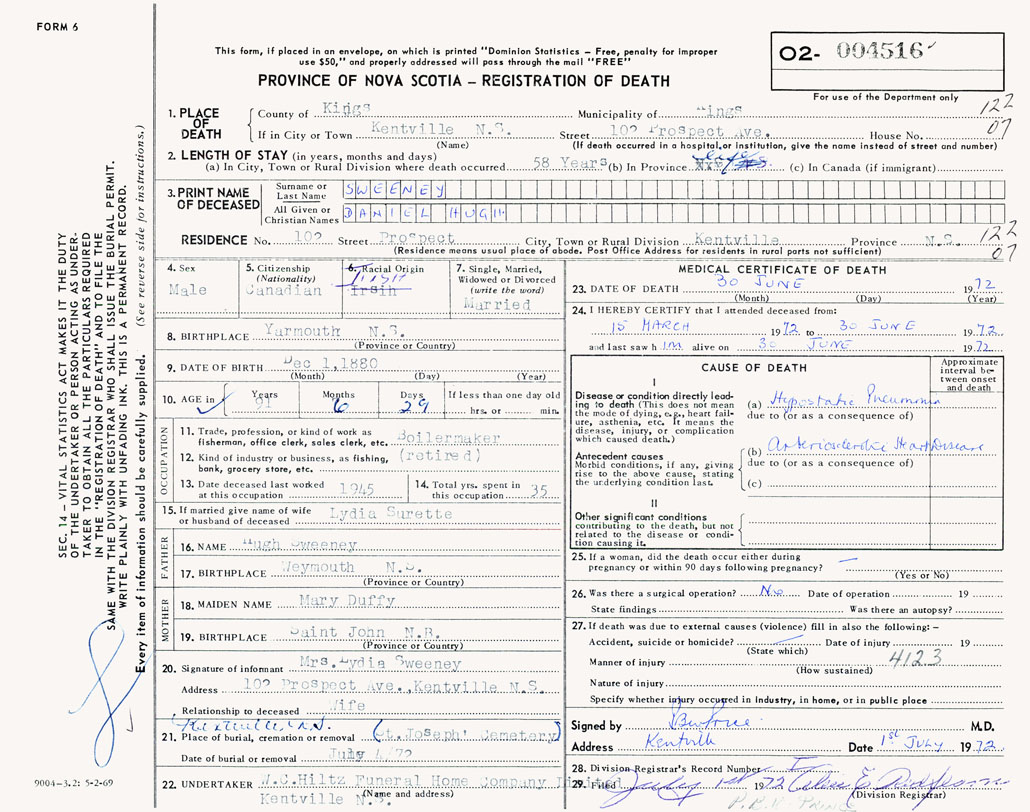 FORM 6
This form, if placed in an envelope, on which is printed "Dominion Statistics – Free, penalty for improper
use $50," and properly addressed will pass through the mail "FREE"
PROVINCE OF NOVA SCOTIA – REGISTRATION OF DEATH
02- 004516
For use of the Department only
122
07
1. PLACE OF DEATH
County of Kings Municipality of Kings
If in City or Town Kentville N.S. Street 102 Prospect Ave. House No.
(Name) (If death occurred in a hospital or institution, give the name instead of street and number)
2. LENGTH OF STAY (in years, months and days)
(a) In City, Town or Rural Division where death occurred 58 Years (b) In Province (c) In Canada (if immigrant)
3. PRINT NAME OF DECEASED
Surname or Last Name SWEENEY
All Given or Christian Names DANIEL HUGH
RESIDENCE No. 102 Street Prospect City, Town or Rural Division Kentville Province N.S.
(Residence means usual place of abode. Post Office Address for residents in rural parts not sufficient)
122
07
4. Sex
Male
5. Citizenship
(Nationality)
Canadian
6. Racial Origin
Irish
Irsih
7. Single, Married,
Widowed or Divorced
(write the word)
Married
8. BIRTHPLACE Yarmouth N.S.
(Province or Country)
9. DATE OF BIRTH Dec 1,1880
(Month) (Day) (Year)
10. AGE in Years Months Days If less than one day old
91 6 29 hrs. or min.
OCCUPATION
11. Trade, profession, or kind of work as
fisherman, office clerk, sales clerk, etc. Boilermaker
12. Kind of industry or business, as fishing, (retired)
bank, grocery store, etc.
13. Date deceased last worked
at this occupation 1945
14. Total yrs. spent in
this occupation 35
15. If married give name of wife
or husband of deceased Lydia Surette
FATHER
16. NAME Hugh Sweeney
17. BIRTHPLACE Weymouth N.S.
(Province or Country)
MOTHER
18. MAIDEN NAME Mary Duffy
19. BIRTHPLACE Saint John N.B.
(Province or Country)
20. Signature of informant Mrs.Lydia Sweeney
Address 102 Prospect Ave.,Kentville N.S.
Relationship to deceased Wife
Kentville N.S.
21. Place of burial, cremation or removal (St.Joseph' Cemetery)
Date of burial or removal July 4/72
22. UNDERTAKER W.C.Hiltz Funeral Home Company Limited
(Name and address)
Kentville N.S.
MEDICAL CERTIFICATE OF DEATH
23. DATE OF DEATH 30 JUNE 1972
(Month) (Day) (Year)
24. I HEREBY CERTIFY that I attended deceased from:
15 MARCH 1972 to 30 JUNE 1972
and last saw him alive on 30 JUNE 1972
CAUSE OF DEATH
Approximate
interval be-
tween onset
and death
I
Disease or condition directly lead-
ing to death (This does not mean
the mode of dying, e.g., heart fail-
ure, asthenia, etc. It means the
disease, injury, or complication
which caused death.)
(a) Hypostatic Pneumonia
due to (or as a consequence of)
Antecedent causes
Morbid conditions, if any, giving
rise to the above cause, stating
the underlying condition last.
(b) Arteriosclerotic Heart Disease
due to (or as a consequence of)
(c)
II
Other significant conditions
contributing to the death, but not
related to the disease or condi-
tion causing it.
25. If a woman, did the death occur either during
pregnancy or within 90 days following pregnancy? –
(Yes or No)
26. Was there a surgical operation? No Date of operation 19
State findings Was there an autopsy?
27. If death was due to external causes (violence) fill in also the following: –
Accident, suicide or homicide? Date of injury 19
(State which)
Manner of injury 4123
(How sustained)
Nature of injury
Specify whether injury occurred in industry, in home, or in public place
Signed by M.D.
Address Kentville Date 1st JULY 1972
28. Division Registrar's Record Number
29. Filed July 1st 1972
(Division Registrar)
SEC. 14 – VITAL STATISTICS ACT MAKES IT THE DUTY
OF THE UNDERTAKER OR PERSON ACTING AS UNDER-
TAKER TO OBTAIN ALL THE PARTICULARS REQUIRED
IN THE "REGISTRATION OF DEATH" AND TO FILE THE
SAME WITH THE DIVISION REGISTRAR WHO SHALL ISSUE THE BURIAL PERMIT.
WRITE PLAINLY WITH UNFADING INK. THIS IS A PERMANENT RECORD.
Every item of information should be carefully supplied. (See reverse side for instructions.)
9004-3.2: 5-2-69